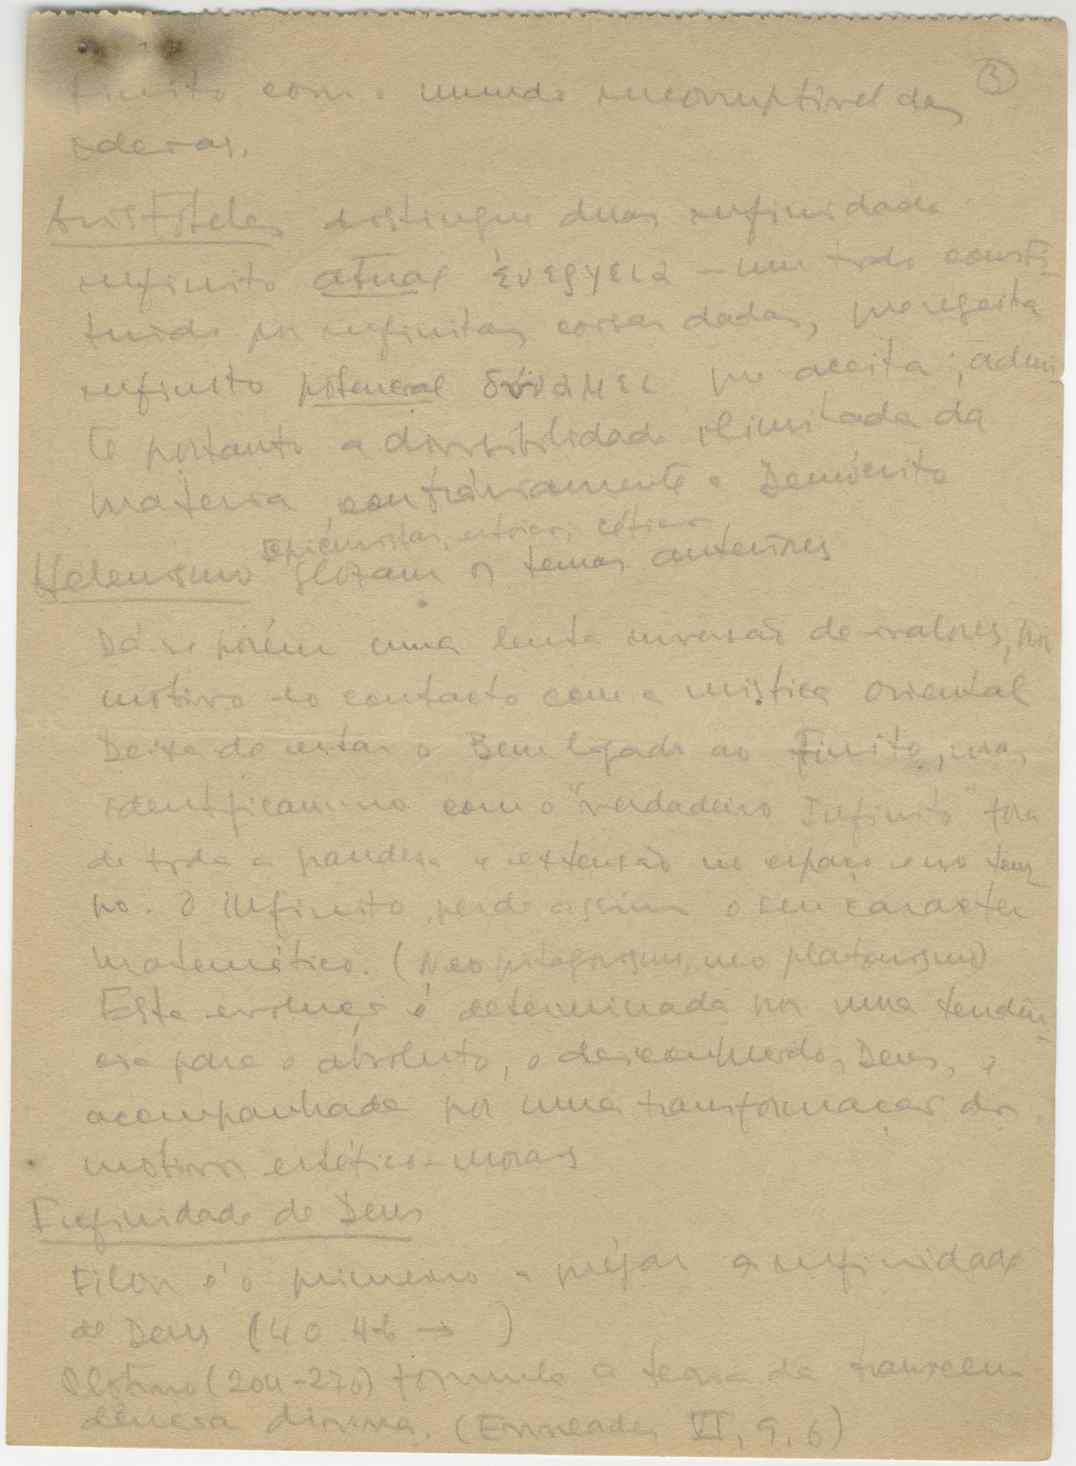 ③
finito com o mundo incorruptível das
ideias.
Aristóteles distingue duas infinidade
infinito atual ἐνεργεια – um todo consti-
tuido por infinitas coisas dadas, que rejeita
infinito potencial δύναμει que aceita; admi-
te portanto a divisibilidade ilimitada da
matéria contráriamente a Demócrito
Epicuristas, estoicos, céticos
Helenismo glozam os temas anteriores
Dá-se porém uma lenta inversão de valores, por
motivo do contacto com a mística oriental
Deixa de estar o Bem ligado ao finito, mas
identificam-no com o "verdadeiro Infinito" fora
de toda a grandeza e extensão no espaço e no tem-
po. O infinito perde assim o seu carácter
matemático. (Neo pitagorismo, neo platonismo)
Esta evolução é determinada por uma tendên-
cia para o absoluto, o desconhecido, Deus, e
acompanhada por uma transformação dos
motivos estético-morais
Infinidade de Deus
Filon é o primeiro a pregar a infinidade
de Deus (40 → )
Plotino (204-270) formula a teoria da transcen-
dência divina. (Enneades VI, 9, 6)